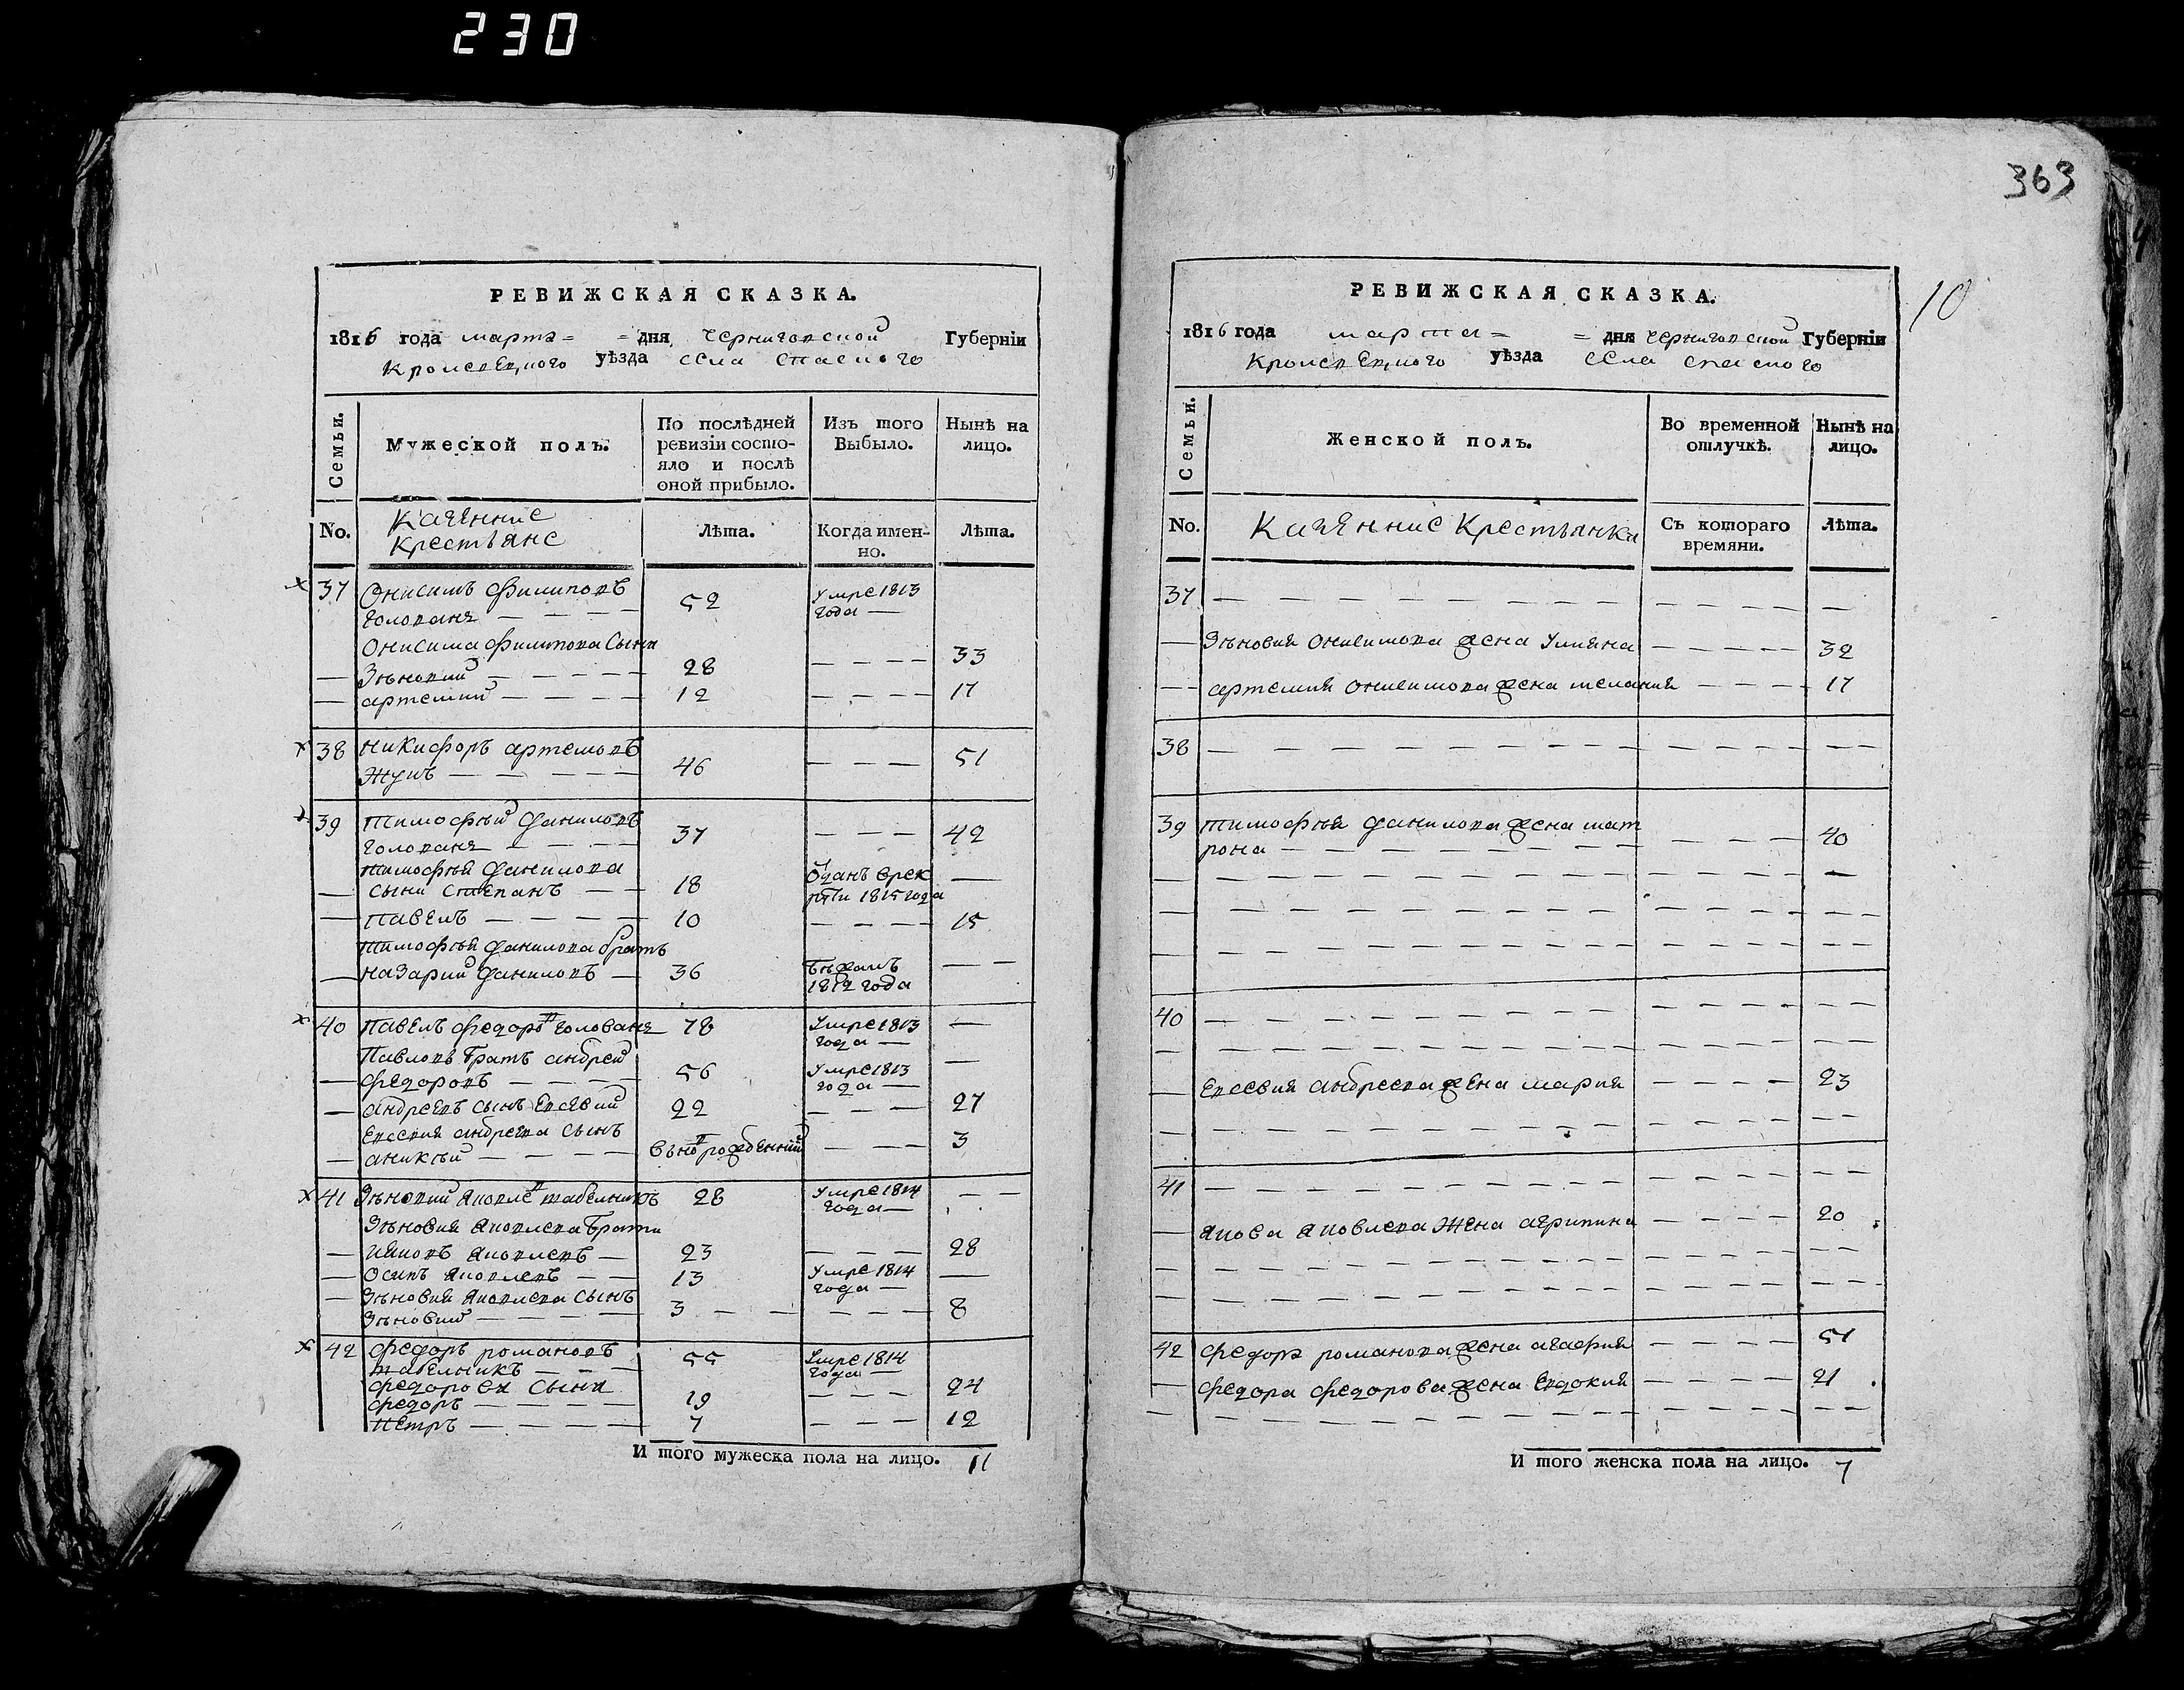 230
РЕВИЖСКАЯ СКАЗКА.
1816 года марта = = дня черниговской Губерніи
Кролевецкого уѣзда села спаского
Семьи.
Мужеской полъ.
По послѣдней ревизіи состо-
яло и послѣ
оной прибыло.
Изъ того
Выбыло.
Нынѣ на
лицо.
No.
Казенние
Крестьяне
Лѣта.
Когда имен-
но.
Лѣта.
37 Онисимъ Филиповъ
голованя — — — 52 умре 1813
года —
Онисима Филипова сыни
— Зѣновий — — — 28 — — — 33
— артемий — — — 12 — — — 17
38 никифоръ артемовъ
Жунъ — — — 46 — — — 51
39 тимофѣй даниловъ
голованя — — — 37 — — — 42
тимофѣя данилова
— сыни степанъ — — 18 Отданъ врек
руты 1815 года —
— павелъ — — — 10 — — — 15
тимофѣя данилова братъ
— назарий даниловъ — 36 бѣжалъ
1812 года — —
40 павелъ федоровъ голованя 78 Умре 1813
года — —
Павловъ братъ андрей
— федоровъ — — — 56 Умре 1813
года — —
— андреевъ сынъ Евсевий 22 — — — 27
Евсевия андреева сынъ
— аникѣй — — — вновъ рожденний — — 3
41 Зѣновий яковлевъ табельникъ 28 умре 1814
года — — —
Зѣновия яковлева брати
— яковъ яковлевъ — 23 — — — 28
— осипъ яковлевъ — — 13 Умре 1814
года — —
— Зѣновия яковлева сынъ
Зѣновий — — — 3 — — — 8
42 федоръ романовъ
табельникъ — — — 55 Умре 1814
года —
федорова сыни
федоръ — — — 19 — — — 24
петръ — — — 7 — — — 12
И того мужеска пола на лицо. 11
363
10
РЕВИЖСКАЯ СКАЗКА.
1816 года марта = = дня черниговской Губерніи
Кролевецкого уѣзда села спаского
Семьи.
Женской полъ.
Во временной
отлучкѣ.
Нынѣ на
лицо.
No.
Казенние Крестьянки
Съ котораго
времяни.
Лѣта.
37 — — — — — —
— Зѣновия онисимова жена Улияна — — — 32
— артемия онисимова жена мелания — — — 17
38 — — — — — —
39 тимофѣя данилова жена мат
рона — — — — — — 40
— — — — — —
— — — — — —
— — — — — —
40 — — — — — —
— — — — — —
— Евсевия андреева жена мария — — — 23
— — — — — —
41 — — — — — —
— якова яковлева Жена агрипина — — — 20
— — — — — —
— — — — — —
42 федора романова жена агафия — — — 51
— федора федорова жена Евдокия — — — 21
— — — — — —
И того женска пола на лицо. 7